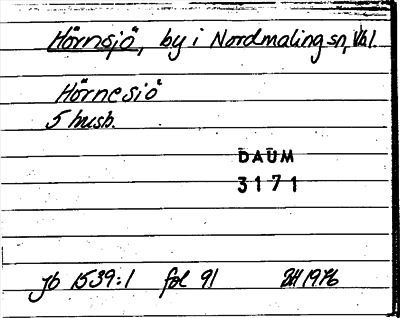 Hörnsjö, by i Nordmaling sn, Vbl.
Hörnesiö
5 husb.
DAUM
3171
jb 1539:1 fol 91 1976